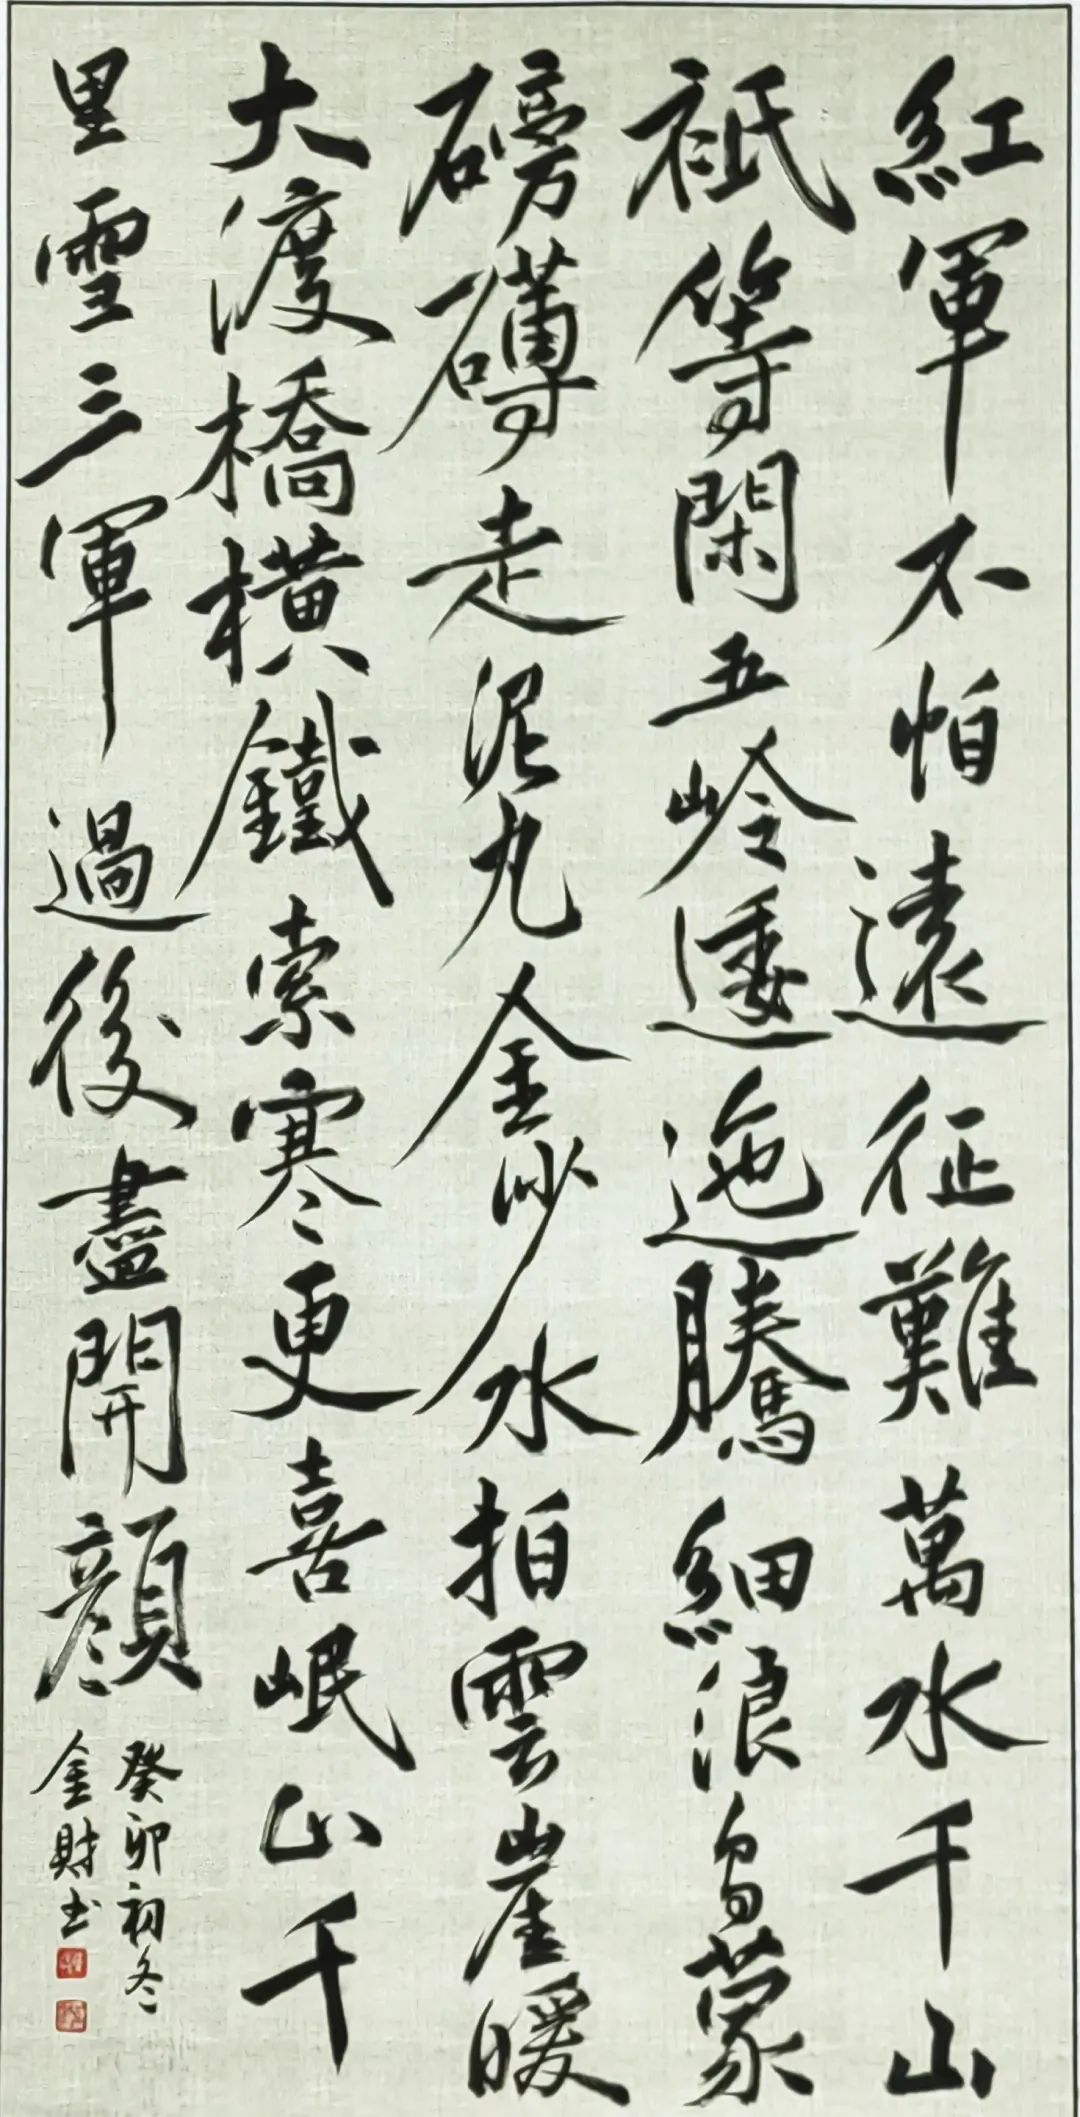 紅軍不怕遠征難萬水千山
祇等閑五岭逶迤騰細浪烏蒙
磅礴走泥丸金沙水拍雲崖暖
大渡橋橫鐵索寒更喜岷山千
里雪三軍過後盡開顏
癸卯初冬
金財书